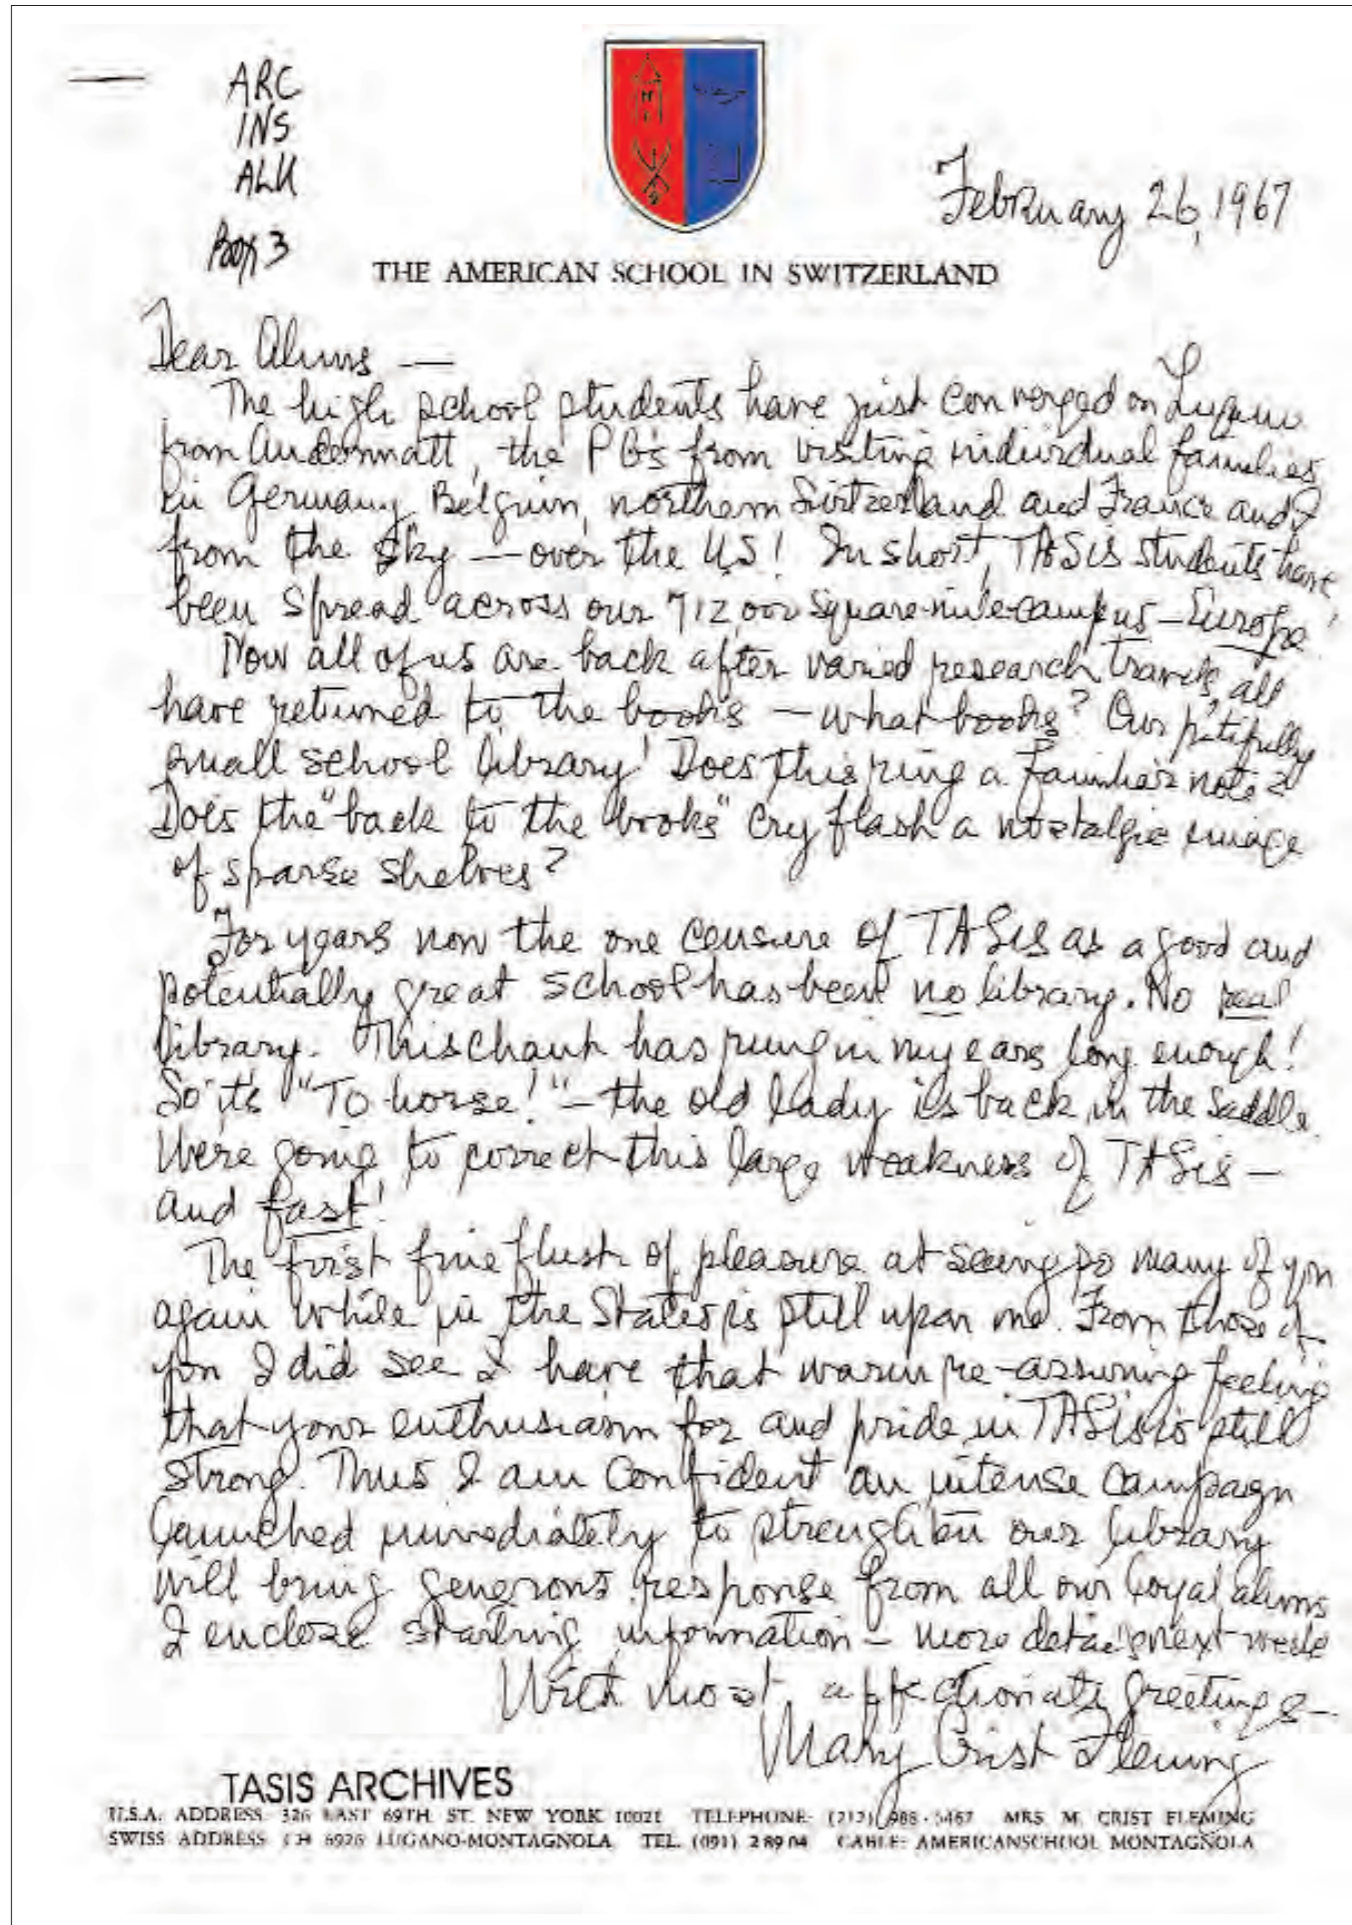 ARC
INS
ALU
Box 3
February 26, 1967
THE AMERICAN SCHOOL IN SWITZERLAND
Dear Alums —
The high school students have just converged on Lugano
from Andermatt, the PGs from visiting individual families
in Germany, Belgium, northern Switzerland and France and I
from the sky — over the US! In short, TASIS students have
been spread across our 712,000 square-mile-campus — Europe!
Now all of us are back after varied research travels, all
have returned to the books — what books? Our pitifully
small school library! Does this ring a familiar note?
Does the "back to the books" cry flash a nostalgic image
of sparse shelves?
For years now the one censure of TASIS as a good and
potentially great school has been no library. No real
library. This chant has rung in my ears long enough!
So it's "To horse!" — the old lady is back in the saddle.
We're going to correct this large weakness of TASIS —
and fast!
The first fine flush of pleasure at seeing so many of you
again while in the States is still upon me. From those of
you I did see I have that warm re-assuring feeling
that your enthusiasm for and pride in TASIS is still
strong. Thus I am confident an intense campaign
launched immediately to strengthen our library
will bring generous response from all our loyal alums
I enclose starting information — more details next week
With most affectionate greetings —
Mary Crist Fleming
TASIS ARCHIVES
U.S.A. ADDRESS: 326 EAST 69TH ST. NEW YORK 10021 TELEPHONE: (212) 988-5467 MRS. M. CRIST FLEMING
SWISS ADDRESS: CH 6926 LUGANO-MONTAGNOLA TEL. (091) 2 89 04 CABLE: AMERICANSCHOOL MONTAGNOLA